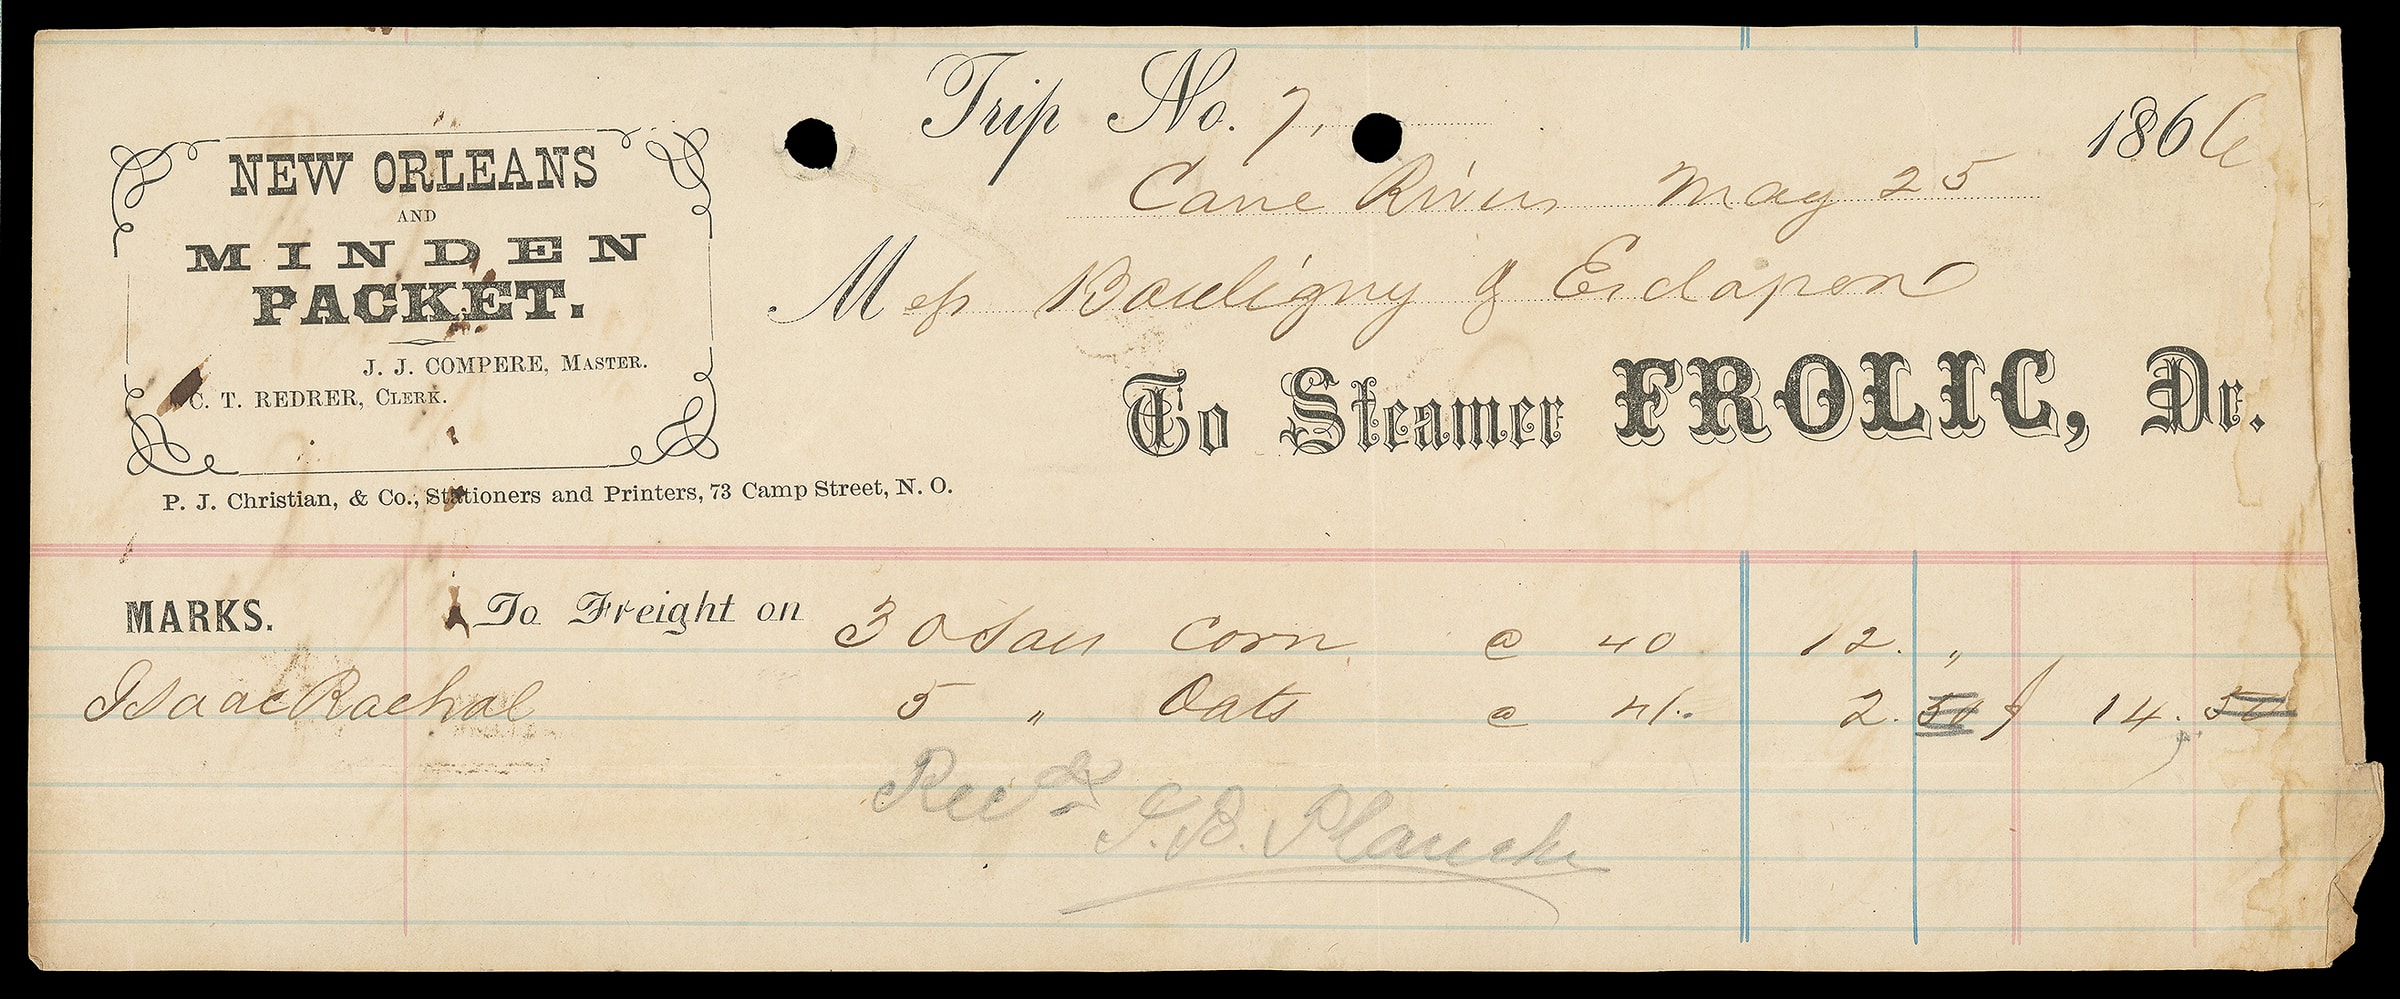 Trip No. 7,
1866
Cane River May 25
NEW ORLEANS
AND
MINDEN
PACKET.
J. J. COMPERE, MASTER.
C. T. REDRER, CLERK.
P. J. Christian, & Co., Stationers and Printers, 73 Camp Street, N. O.
Mess Bouligny &
To Steamer FROLIC, Dr.
MARKS. To Freight on 30 Corn @ 40 12. "
Isaac Rachal 5 " Oats @ 2. 50 14. 50
Recd J. B. Planche